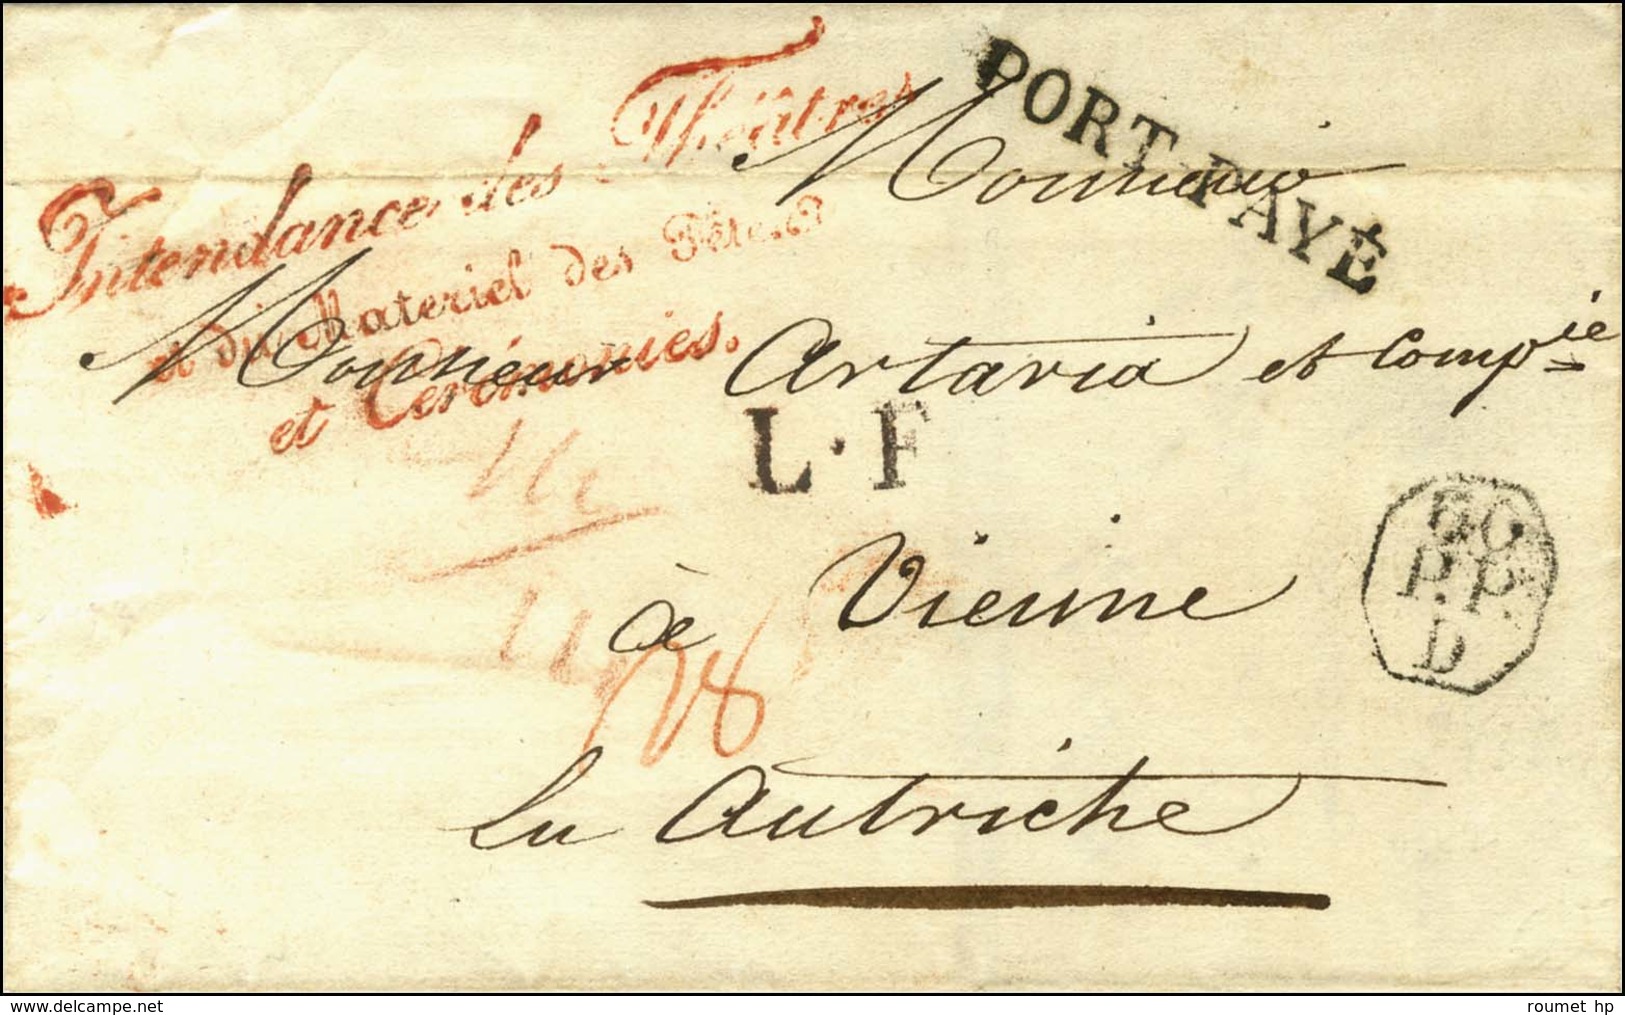 Intendance des Théâtres
et du Materiel des Fêtes
et Cérémonies.
PORT PAYÉ
Monsieur
Monsieur Artaria et Comp.ie
L.F
à Vienne
P.P.
D
28
en Autriche
www.delcampe.net
roumet hp